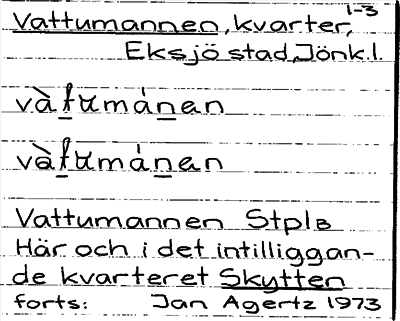 1-3
Vattumannen, kvarter,
Eksjö stad, Jönk.l.
và̱t̲umán̲an
và̱t̲umán̲an
Vattumannen StplB
Här och i det intilliggan-
de kvarteret Skytten
forts: Jan Agertz 1973